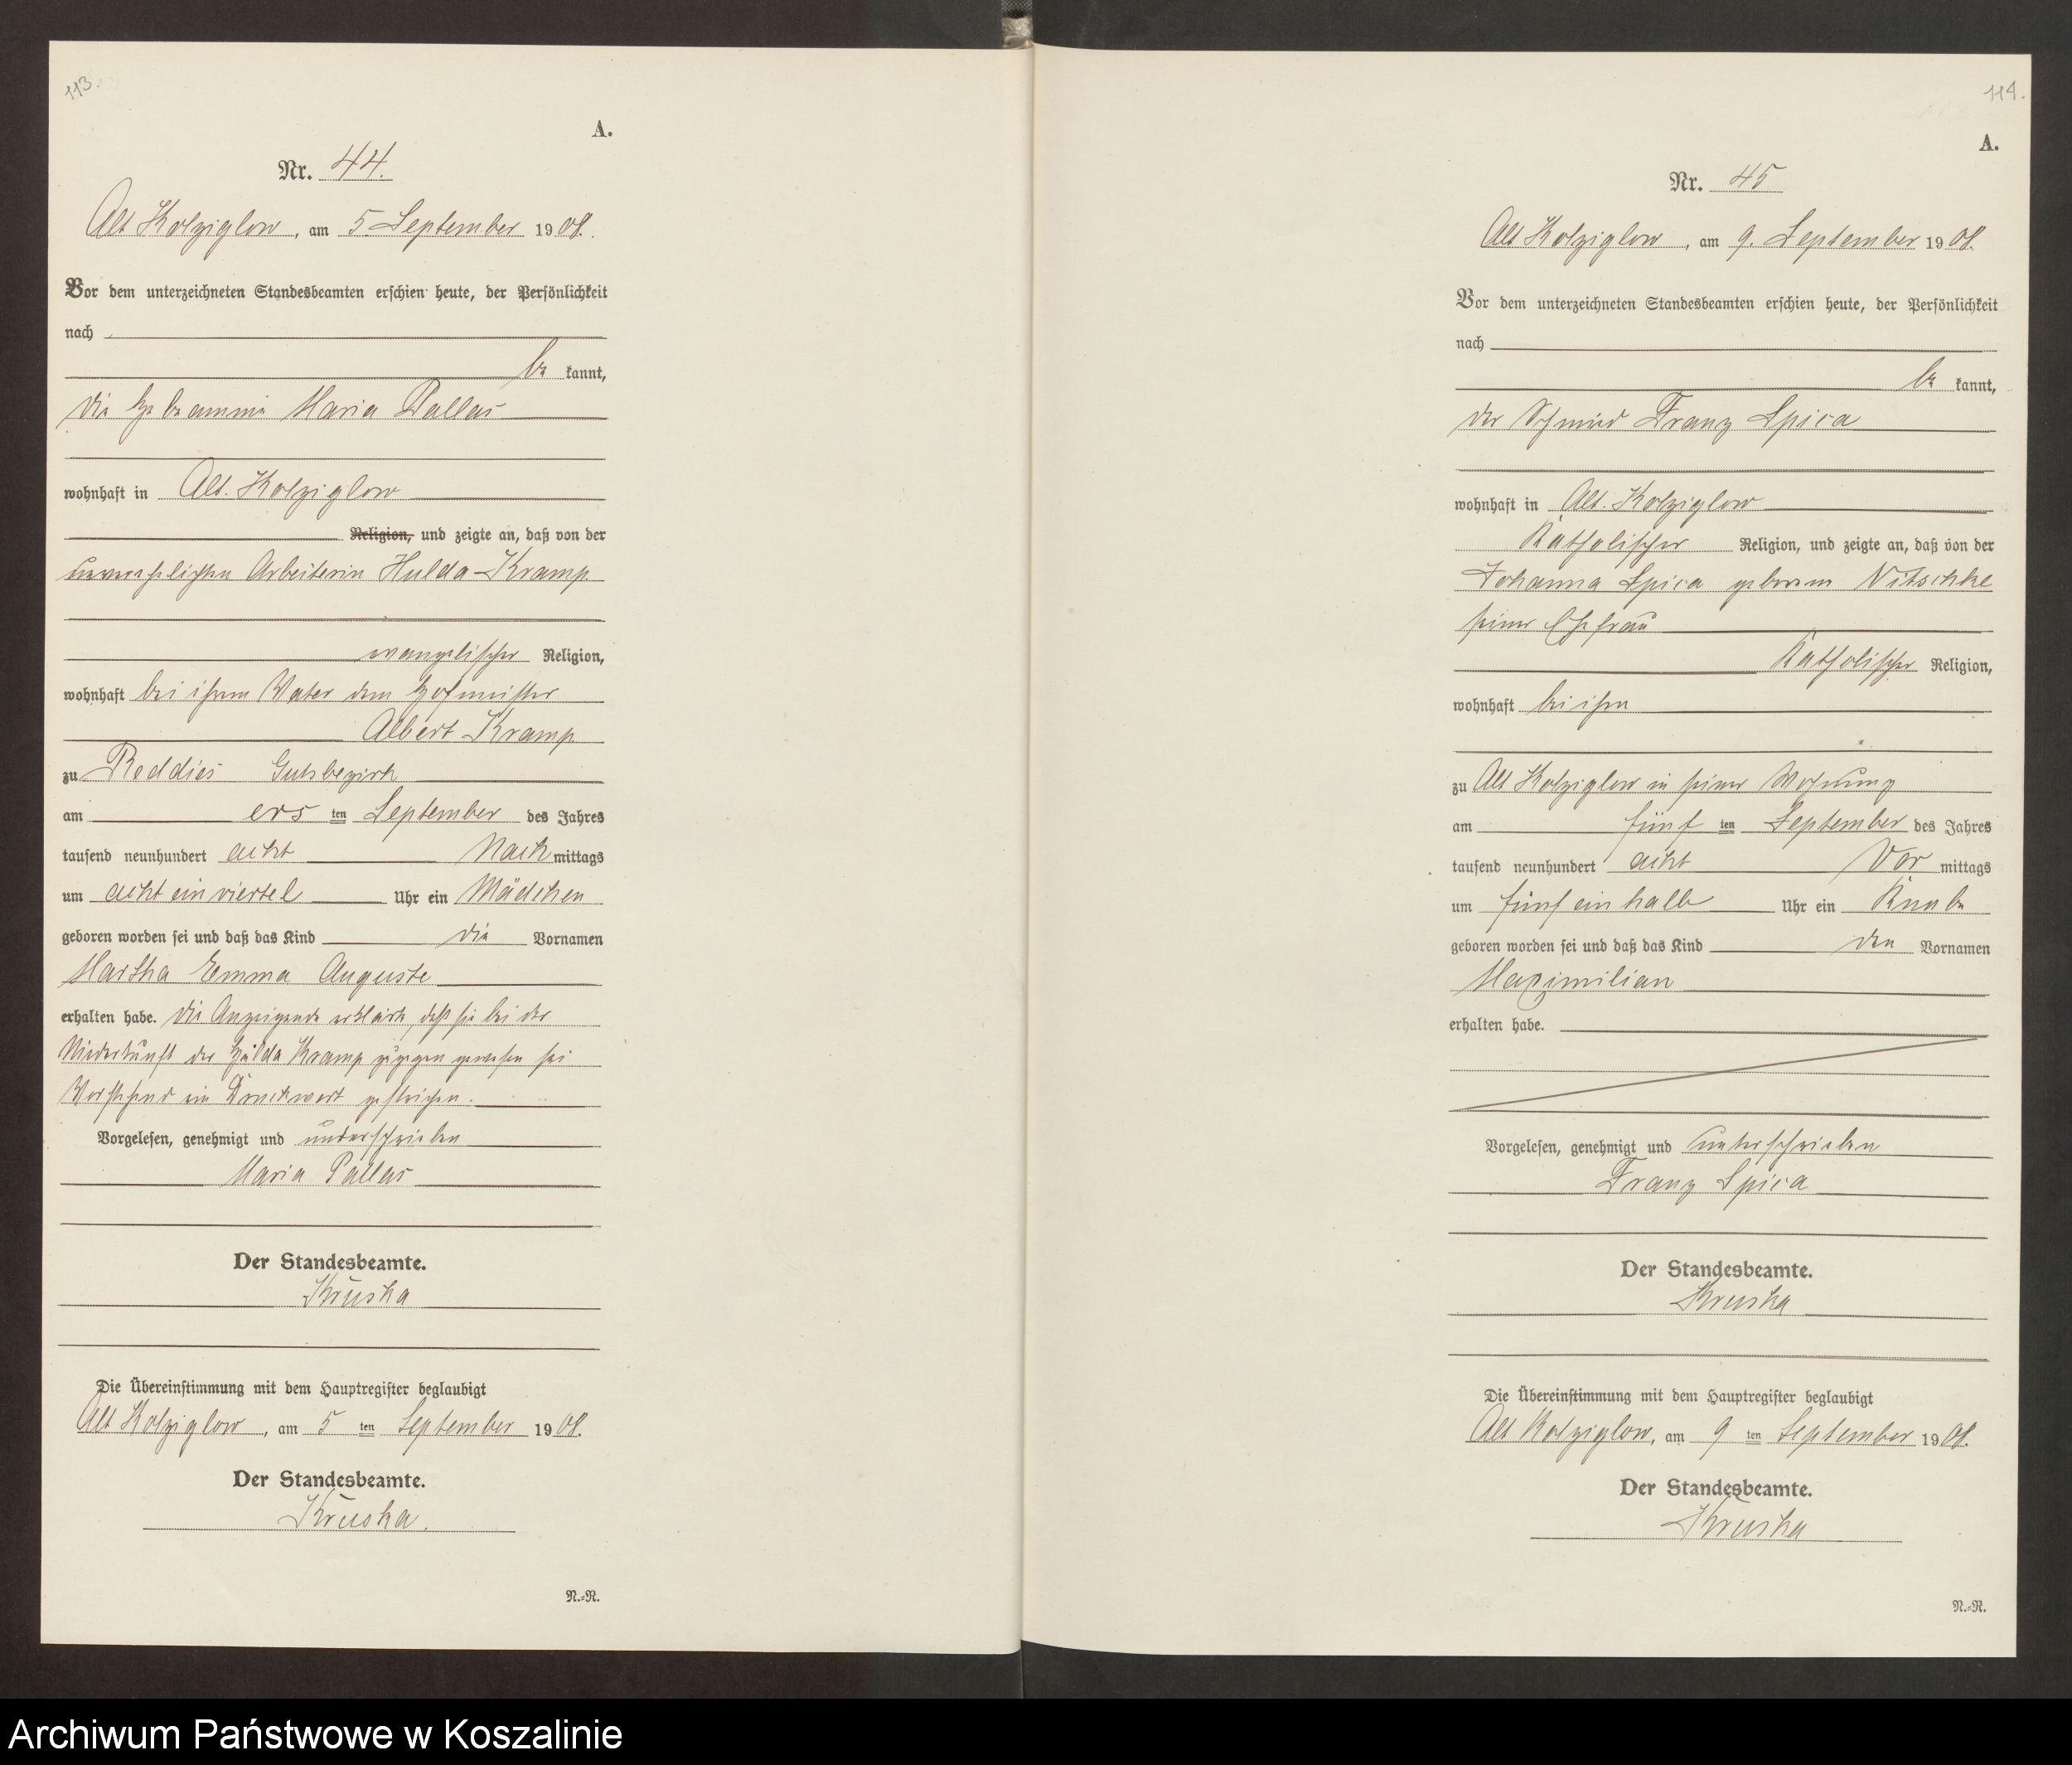 113.
A.
Nr. 44.
Alt Kolziglow, am 5. September 1908.
Vor dem unterzeichneten Standesbeamten erschien heute, der Persönlichkeit
nach
be kannt,
die Hebamme Maria Pallas
wohnhaft in Alt. Kolziglow
Religion, und zeigte an, daß von der
unverehelichten Arbeiterin Hulda Kramp
evangelischer Religion,
wohnhaft bei ihrem Vater dem Hofmeister
Albert Kramp
zu Reddies Gutsbezirk
am ers ten September des Jahres
tausend neunhundert acht Nach mittags
um acht ein viertel Uhr ein Mädchen
geboren worden sei und daß das Kind die Vornamen
Martha Emma Auguste
erhalten habe. Die Anzeigende erklärte, daß sie bei der
Niederkunft der Hulda Kramp zugegen gewesen sei
Vorstehend ein Druckwort gestrichen.
Vorgelesen, genehmigt und unterschrieben
Maria Pallas
Der Standesbeamte.
Kruska
Die Übereinstimmung mit dem Hauptregister beglaubigt
Alt Kolziglow, am 5 ten September 1908.
Der Standesbeamte.
Kruska.
N.=N.
114.
A.
Nr. 45
Alt Kolziglow, am 9. September 1908.
Vor dem unterzeichneten Standesbeamten erschien heute, der Persönlichkeit
nach
be kannt,
der Schmied Franz Spica
wohnhaft in Alt. Kolziglow
Katholischer Religion, und zeigte an, daß von der
Johanna Spica geborenen Nitschke
seiner Ehefrau
Katholischer Religion,
wohnhaft bei ihm
zu Alt Kolziglow in seiner Wohnung
am fünf ten September des Jahres
tausend neunhundert acht Vor mittags
um fünf ein halb Uhr ein Knabe
geboren worden sei und daß das Kind den Vornamen
Maximilian
erhalten habe.
Vorgelesen, genehmigt und unterschrieben
Franz Spica
Der Standesbeamte.
Kruska
Die Übereinstimmung mit dem Hauptregister beglaubigt
Alt Kolziglow, am 9 ten September 1908.
Der Standesbeamte.
Kruska
N.=N.
Archiwum Państwowe w Koszalinie